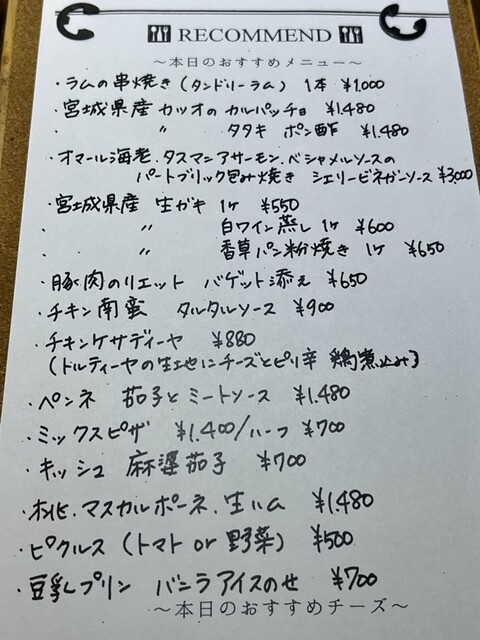 RECOMMEND
～本日のおすすめメニュー～
・ラムの串焼き（タンドリーラム） 1本 ¥1,000
・宮城県産 カツオの カルパッチョ ¥1,480
・ 〃 タタキ ポン酢 ¥1,480
・オマール海老、タスマニアサーモン、ベシャメルソースの
パートブリック包み焼き シェリービネガーソース ¥3,000
・宮城県産 生ガキ 1ヶ ¥550
・ 〃 白ワイン蒸し 1ヶ ¥600
・ 〃 香草パン粉焼き 1ヶ ¥650
・豚肉のリエット バゲット添え ¥650
・チキン南蛮 タルタルソース ¥900
・チキンケサディーヤ ¥880
（トルティーヤの生地にチーズとピリ辛 鶏煮込み）
・ペンネ 茄子とミートソース ¥1,480
・ミックスピザ ¥1,400/ハーフ ¥700
・キッシュ 麻婆茄子 ¥700
・桃、マスカルポーネ、生ハム ¥1,480
・ピクルス（トマト or 野菜） ¥500
・豆乳プリン バニラアイスのせ ¥700
～本日のおすすめチーズ～